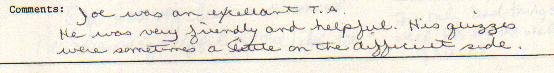 Comments: Joe was an excellant T.A.
He was very friendly and helpful. His quizzes
were sometimes a little on the difficult side.